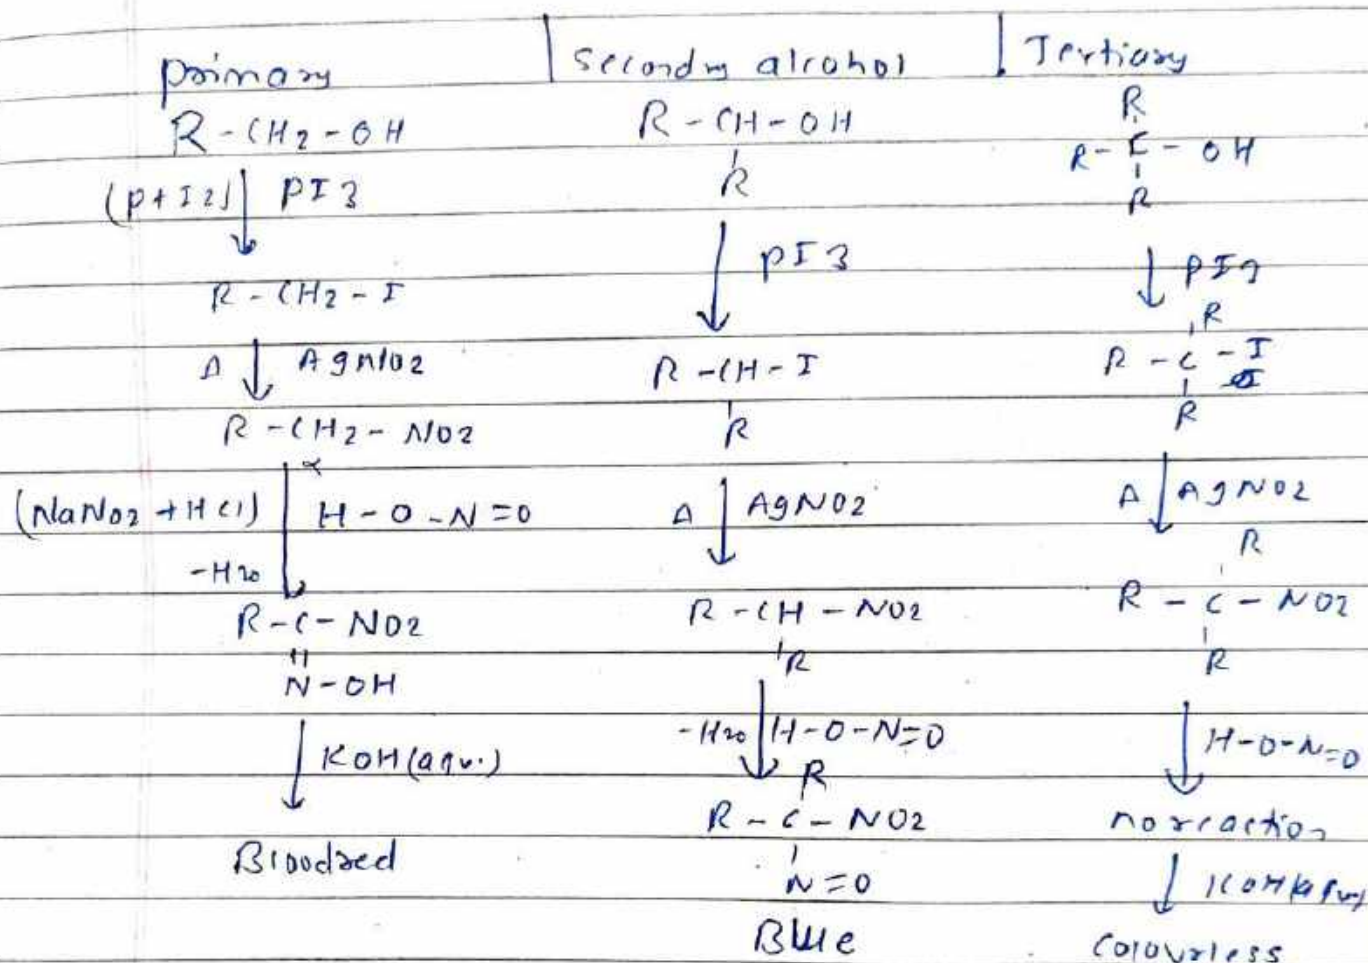 primary
R-CH2-OH
(P+I2) PI3
R-CH2-I
Δ AgNO2
R-CH2-NO2
α
(NaNO2+HCl) H-O-N=O
-H2O
R-C-NO2
N-OH
KOH(aqu.)
Bloodred
Secondry alcohol
R-CH-OH
R
PI3
R-CH-I
R
Δ AgNO2
R-CH-NO2
R
-H2O H-O-N=O
R
R-C-NO2
N=O
Blue
Tertiary
R
R-C-OH
R
PI3
R
R-C-I
R
Δ AgNO2
R
R-C-NO2
R
H-O-N=O
no reaction
KOH(aqu.)
Colourless